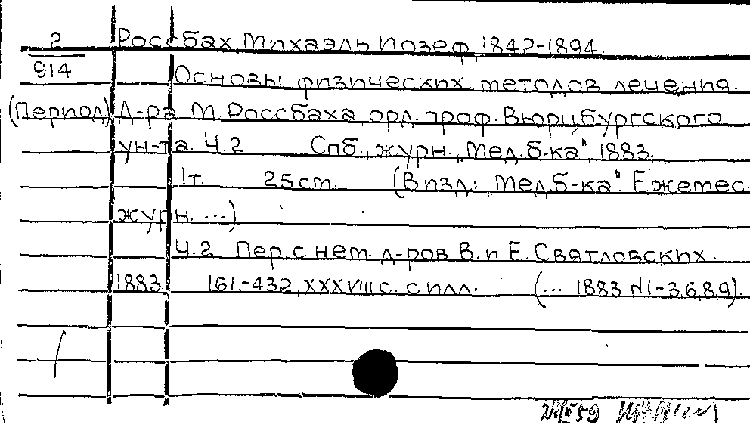 2 Россбах Михаэль Иозеф, 1842-1894.
914 Основы физических методов лечения.
(Период) Д-ра М. Россбаха, орд. проф. Вюрцбургского
ун-та. Ч.2 Спб., журн. „Мед. б-ка", 1883.
1т. 25см. (В изд.: Мед. б-ка". Ежемес.
журн. ...)
Ч.2 Пер. с нем. д-ров В. и Е. Святловских.
1883. 161-432, XXXVIII с. с илл. (... 1883 N1-3,6,8,9).